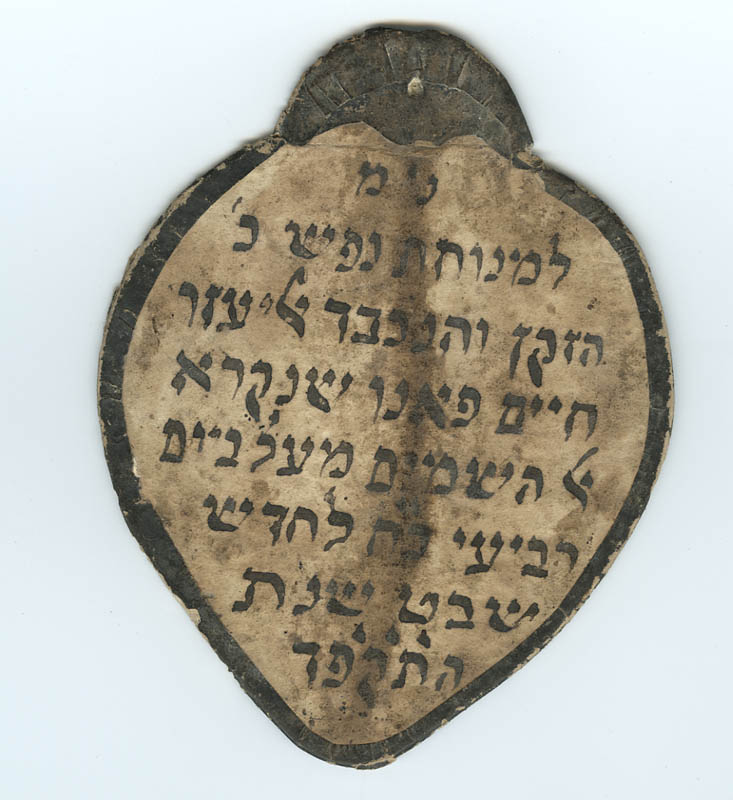 למנוחת נפש כ'
הזקן והנכבד אליעזר
חיים פאנו שנקרא
אל השמים מעל ביום
רביעי כח לחדש
שבט שנת
התקפד